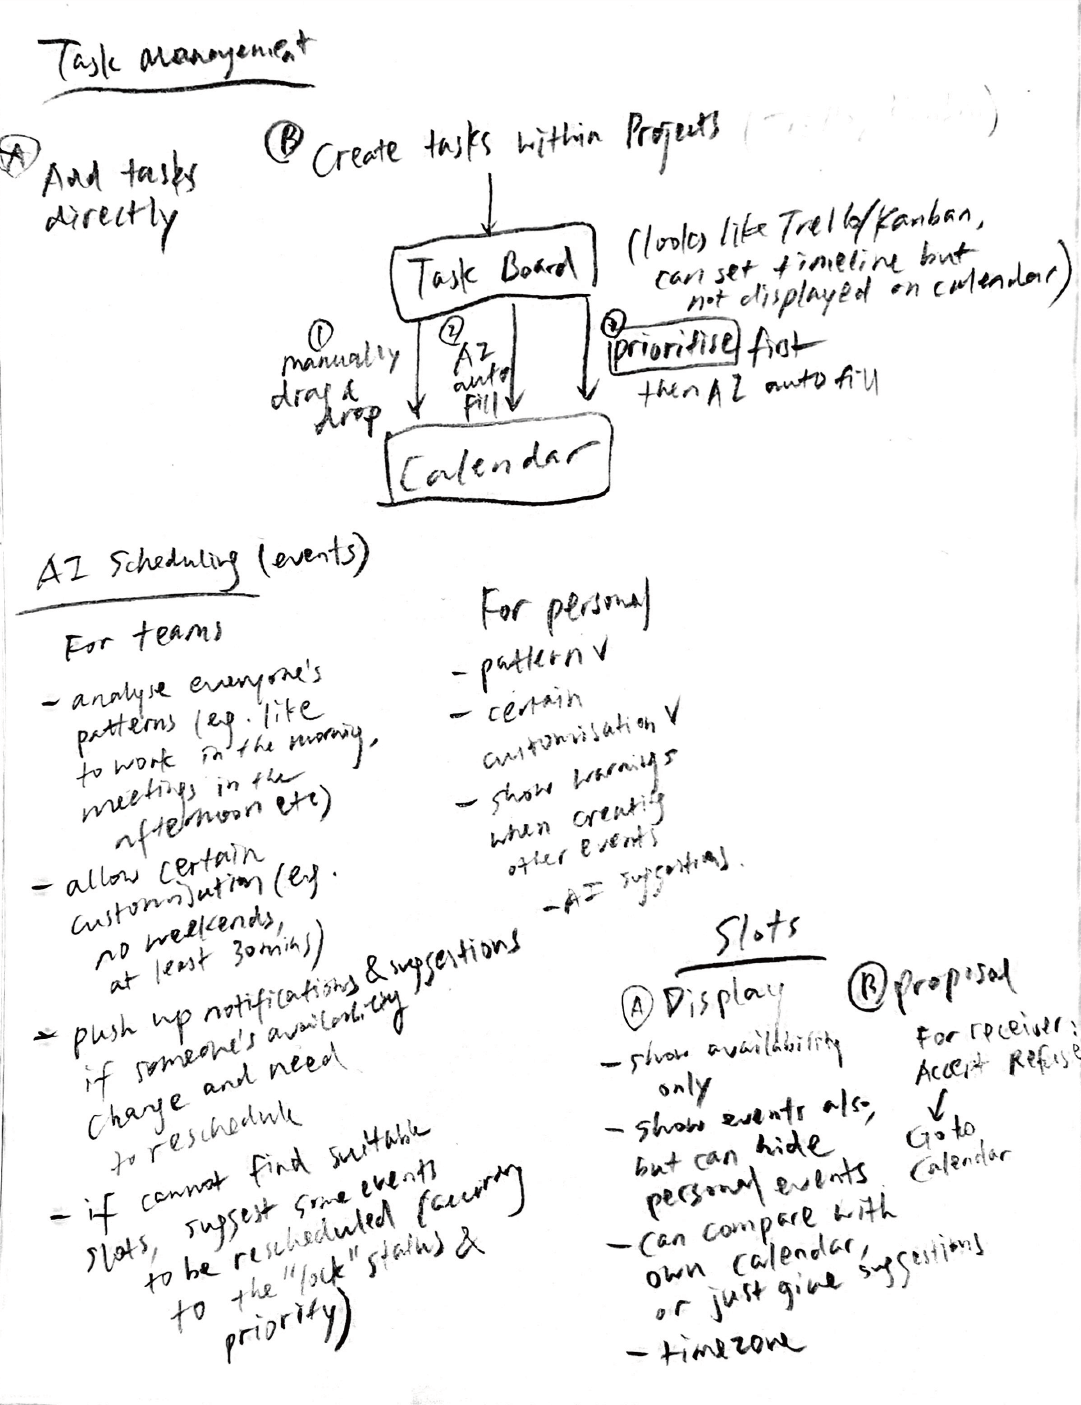 Task Management
A Add tasks
directly
B Create tasks within Projects
Task Board
(looks like Trello/Kanban,
can set timeline but
not displayed on calendar)
1
manually
drag &
drop
2
AI
auto
fill
prioritise first
then AI auto fill
Calendar
AI Scheduling (events)
For teams
- analyse everyone's
patterns (eg. like
to work in the morning,
meetings in the
afternoon etc)
- allow certain
customisation (eg.
no weekends,
at least 30mins)
- push up notifications & suggestions
if someone's availability
change and need
to reschedule
- if cannot find suitable
slots, suggest some events
to be rescheduled (according
to the "lock" status &
priority)
For personal
- pattern √
- certain
customisation √
- show warnings
when creating
other events
- AI suggestions.
Slots
A Display
- show availability
only
- show events also,
but can hide
personal events
- can compare with
own calendar,
or just give suggestions
- timezone
B Proposal
For receiver:
Accept Refuse
↓
Go to
Calendar